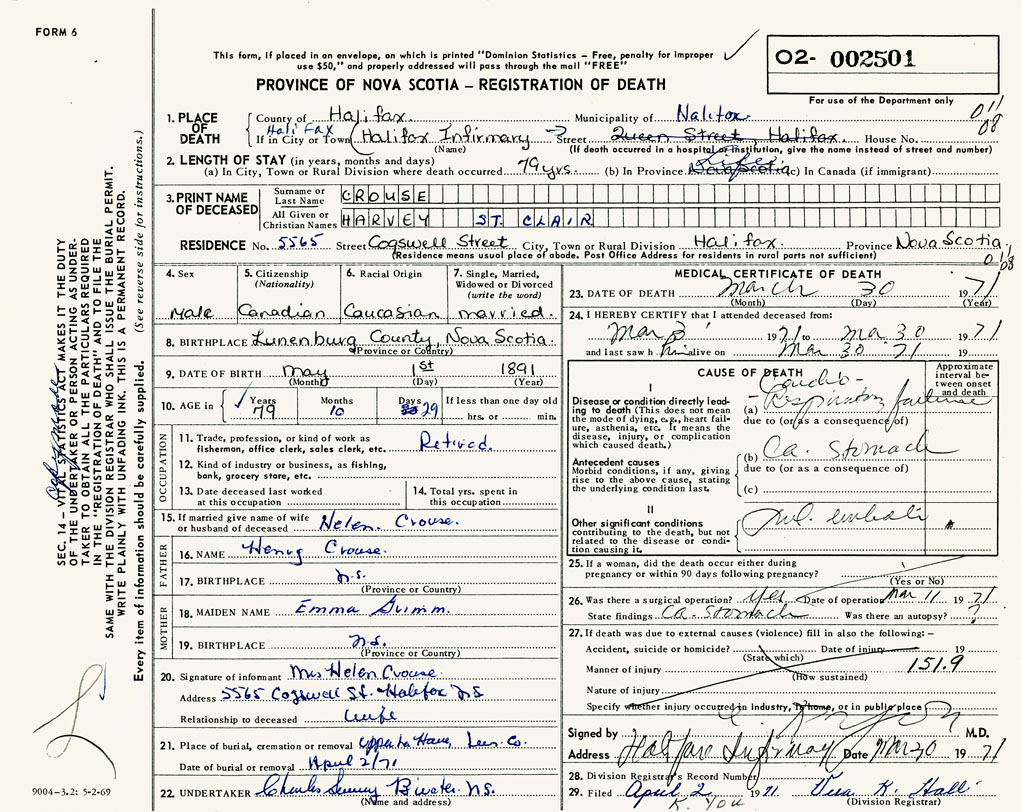 FORM 6
This form, if placed in an envelope, on which is printed "Dominion Statistics – Free, penalty for improper
use $50," and properly addressed will pass through the mail "FREE"
02- 002501
PROVINCE OF NOVA SCOTIA – REGISTRATION OF DEATH
For use of the Department only
1. PLACE OF DEATH County of Halifax Municipality of Halifax 011
08
If in City or Town Halifax (Halifax Infirmary Street Queen Street, Halifax House No.
(Name) (If death occurred in a hospital or institution, give the name instead of street and number)
2. LENGTH OF STAY (in years, months and days)
(a) In City, Town or Rural Division where death occurred 79 yrs. (b) In Province Nova Scotia Life (c) In Canada (if immigrant)
3. PRINT NAME OF DECEASED Surname or Last Name CROUSE
All Given or Christian Names HARVEY ST. CLAIR
RESIDENCE No. 5565 Street Cogswell Street City, Town or Rural Division Halifax Province Nova Scotia.
(Residence means usual place of abode. Post Office Address for residents in rural parts not sufficient)
4. Sex Male
5. Citizenship (Nationality) Canadian
6. Racial Origin Caucasian
7. Single, Married, Widowed or Divorced (write the word) married.
8. BIRTHPLACE Lunenburg County, Nova Scotia.
(Province or Country)
9. DATE OF BIRTH May 1st 1891
(Month) (Day) (Year)
10. AGE in Years 79 Months 10 Days 29 If less than one day old hrs. or min.
OCCUPATION
11. Trade, profession, or kind of work as fisherman, office clerk, sales clerk, etc. Retired.
12. Kind of industry or business, as fishing, bank, grocery store, etc.
13. Date deceased last worked at this occupation
14. Total yrs. spent in this occupation
15. If married give name of wife or husband of deceased Helen Crouse.
FATHER
16. NAME Henry Crouse.
17. BIRTHPLACE N.S.
(Province or Country)
MOTHER
18. MAIDEN NAME Emma Grimm.
19. BIRTHPLACE N.S.
(Province or Country)
20. Signature of informant Mrs Helen Crouse
Address 5565 Cogswell St. Halifax NS
Relationship to deceased wife
21. Place of burial, cremation or removal Upper La Have Lun. Co.
Date of burial or removal April 2/71
22. UNDERTAKER Charles
N.S.
(Name and address)
MEDICAL CERTIFICATE OF DEATH
0108
23. DATE OF DEATH March 30 1971
(Month) (Day) (Year)
24. I HEREBY CERTIFY that I attended deceased from:
Mar 3 1971 to Mar 30 1971
and last saw him alive on Mar 30 71 19
CAUSE OF DEATH
Approximate interval between onset and death
I
Disease or condition directly leading to death (This does not mean the mode of dying, e.g., heart failure, asthenia, etc. It means the disease, injury, or complication which caused death.)
(a) Cardio-Respiratory failure
due to (or as a consequence of)
Antecedent causes
Morbid conditions, if any, giving rise to the above cause, stating the underlying condition last.
(b) Ca. Stomach
due to (or as a consequence of)
(c)
II
Other significant conditions
contributing to the death, but not related to the disease or condition causing it.
emboli
25. If a woman, did the death occur either during pregnancy or within 90 days following pregnancy?
(Yes or No)
26. Was there a surgical operation? yes Date of operation Mar 11 1971
State findings Ca. Stomach Was there an autopsy? ?
27. If death was due to external causes (violence) fill in also the following: –
Accident, suicide or homicide? Date of injury 19
(State which)
Manner of injury 151.9
(How sustained)
Nature of injury
Specify whether injury occurred in industry, in home, or in public place
Signed by M.D.
Address Halifax Infirmary Date Mar 30 1971
28. Division Registrar's Record Number
29. Filed April 2 1971 K. Hall
(Division Registrar)
SEC. 14 – VITAL STATISTICS ACT MAKES IT THE DUTY
OF THE UNDERTAKER OR PERSON ACTING AS UNDER-
TAKER TO OBTAIN ALL THE PARTICULARS REQUIRED
IN THE "REGISTRATION OF DEATH" AND TO FILE THE
SAME WITH THE DIVISION REGISTRAR WHO SHALL ISSUE THE BURIAL PERMIT.
WRITE PLAINLY WITH UNFADING INK. THIS IS A PERMANENT RECORD.
Every item of information should be carefully supplied. (See reverse side for instructions.)
9004-3.2: 5-2-69